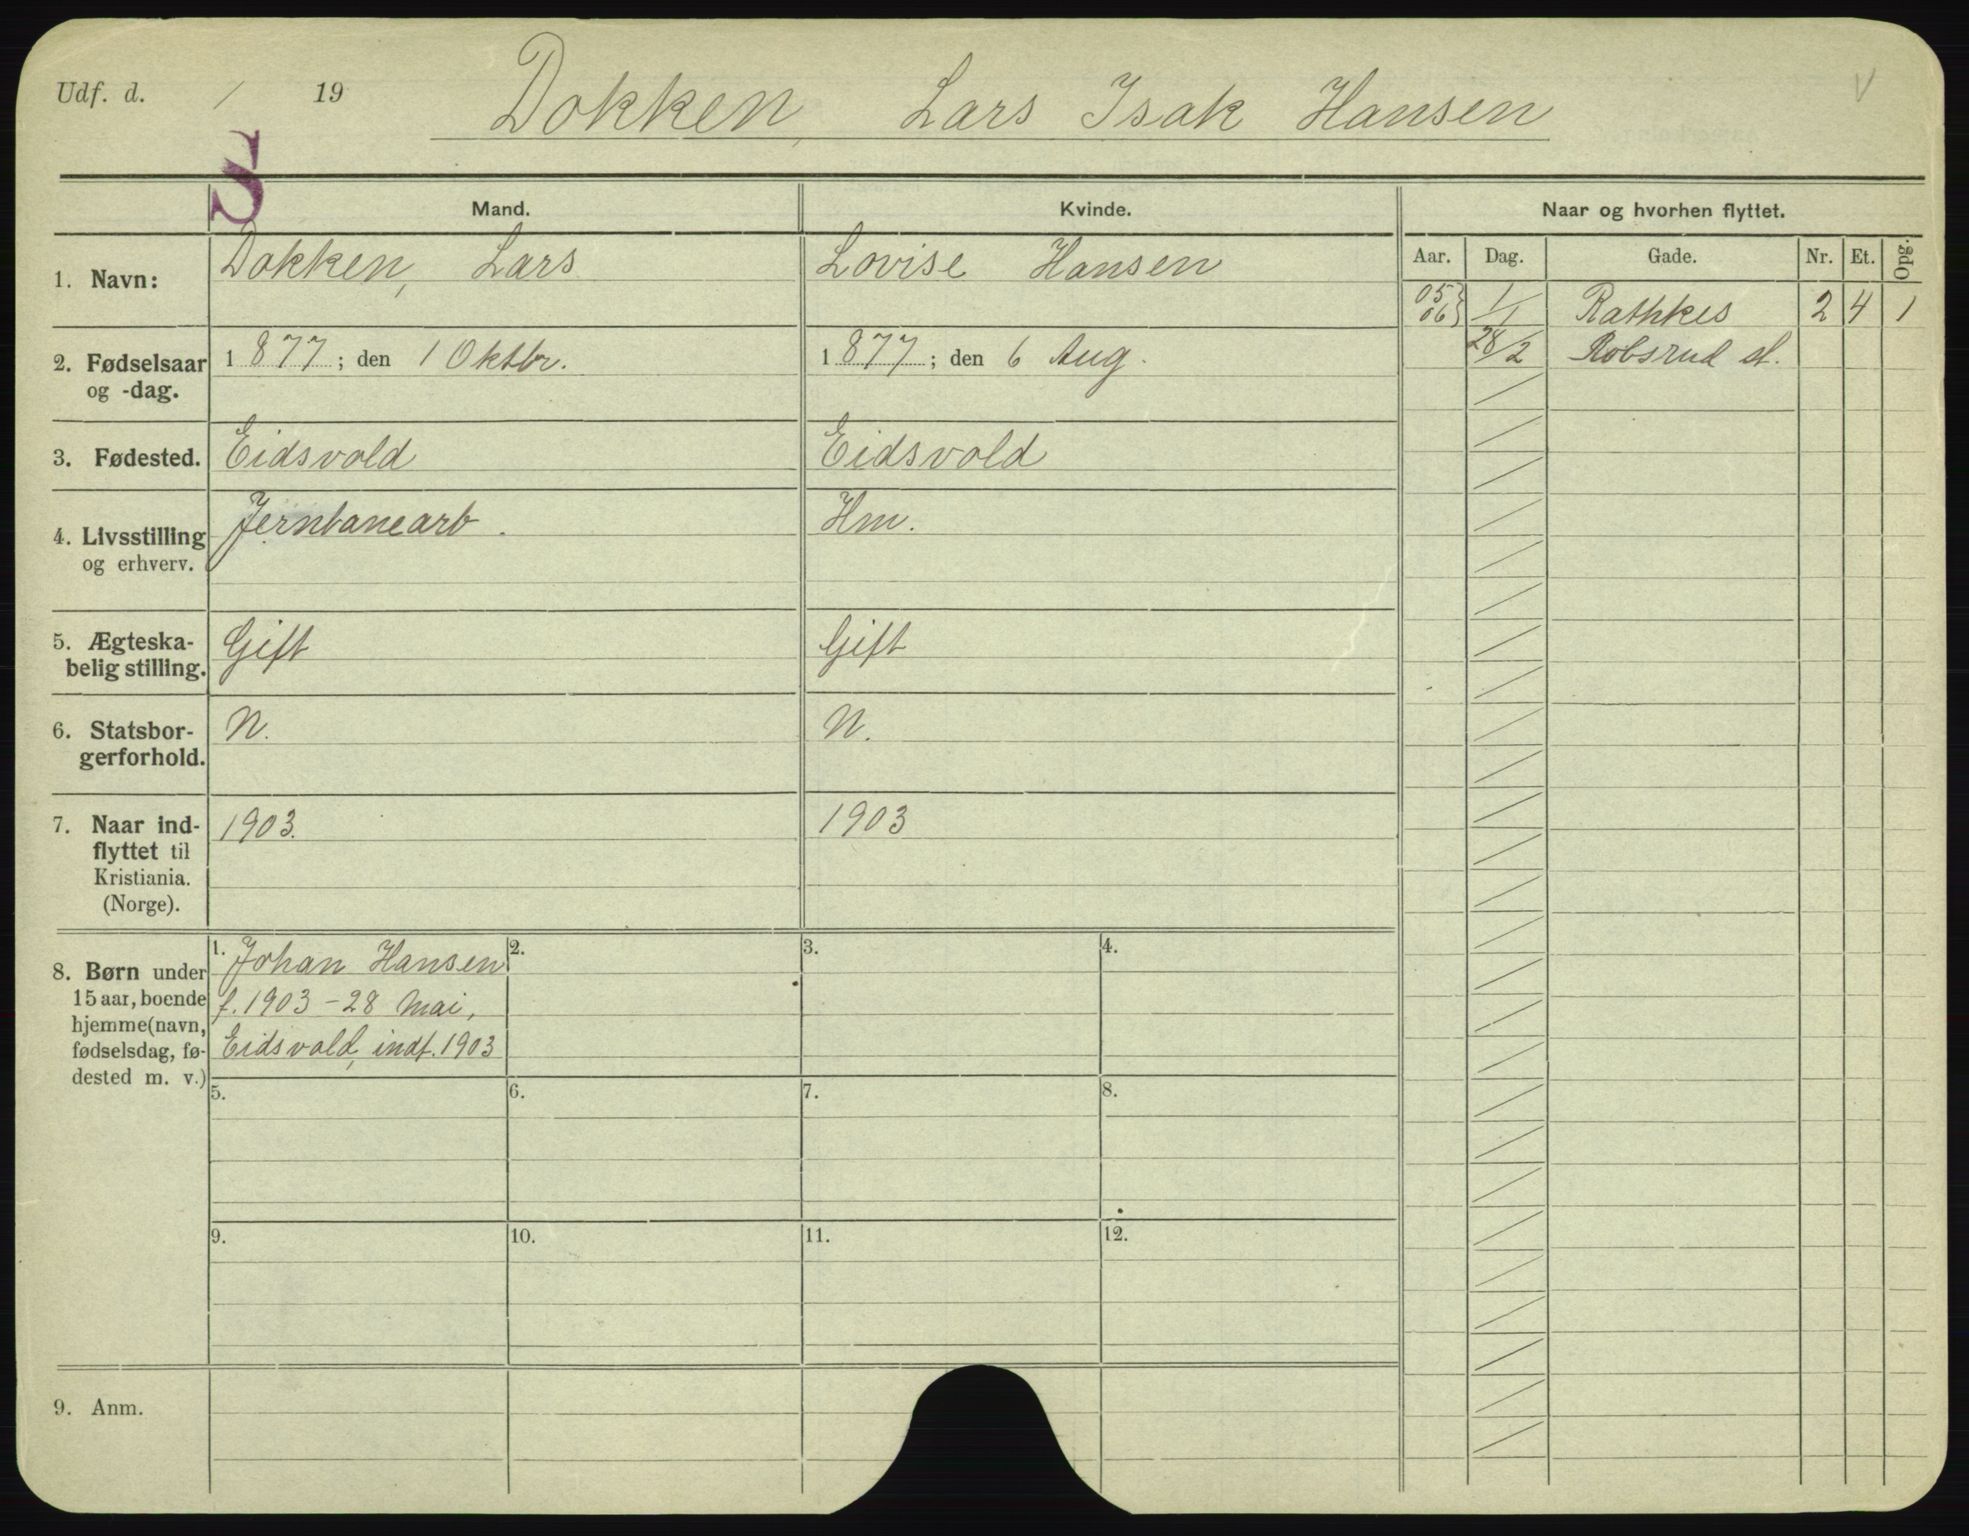 Udf. d. / 19 Dokken, Lars Isak Hansen V
S
Mand. Kvinde. Naar og hvorhen flyttet.
Aar. Dag. Gade. Nr. Et. Opg.
1. Navn: Dokken, Lars Lovise Hansen
05 } 1/1 Rathkes 2 4 1
06
28/2 Robsrud st.
2. Fødselsaar 1877; den 1 Oktbr. 1877; den 6 Aug.
og -dag.
3. Fødested. Eidsvold Eidsvold
4. Livsstilling Jernbanearb. Hm.
og erhverv.
5. Ægteska- Gift Gift
belig stilling.
6. Statsbor- N. N.
gerforhold.
7. Naar ind- 1903. 1903
flyttet til
Kristiania.
(Norge).
8. Børn under
15 aar, boende
hjemme (navn,
fødselsdag, fø-
dested m. v.)
1. Johan Hansen
f. 1903 - 28 Mai,
Eidsvold, indf. 1903
2. 3. 4.
5. 6. 7. 8.
9. 10. 11. 12.
9. Anm.